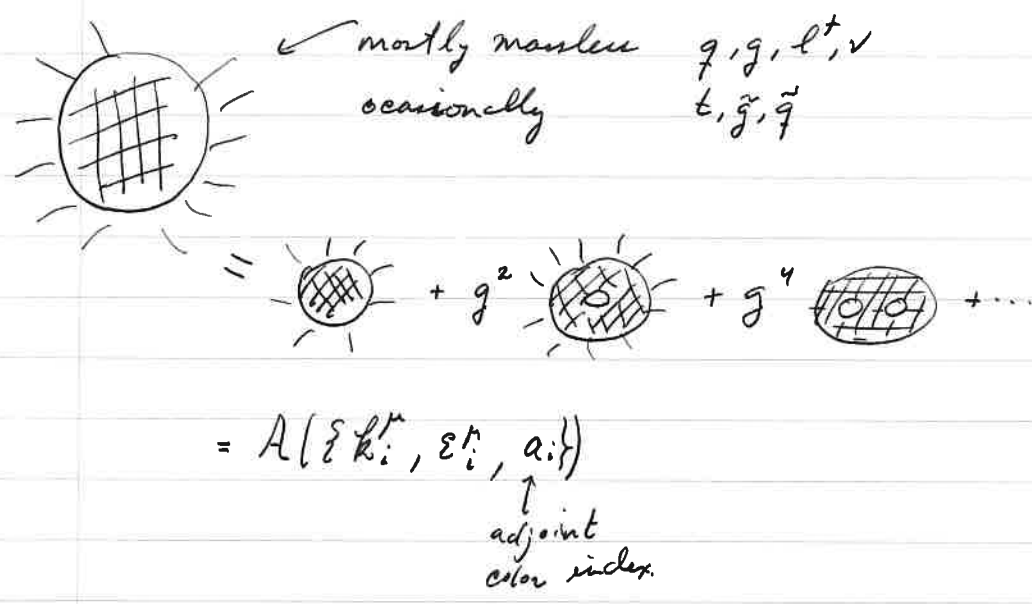 mostly massless q, g, l⁺, ν
ocasionally t, g̃, q̃
= + g² + g⁴ + ...
= A({k_i^μ, ε_i^μ, a_i})
↑
adjoint
color index.